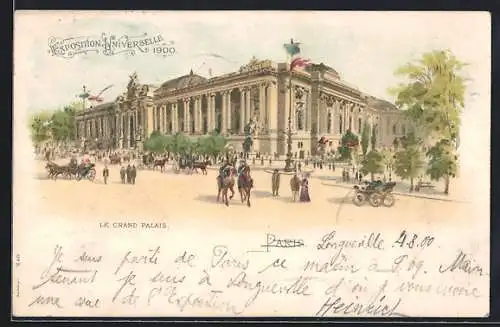 EXPOSITION UNIVERSELLE
1900.
LE GRAND PALAIS.
PARIS Longueville 4.8.00
Je suis partie de Paris ce matin à 8.09. Main
tenant je suis à Longueville d'où je vous envoie
une vue de l'Exposition
Heinrich